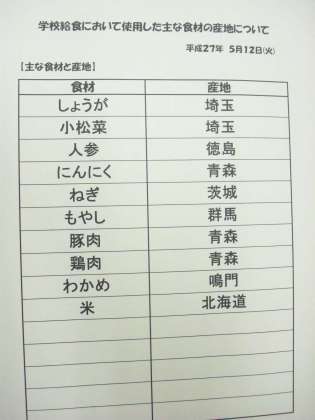 学校給食において使用した主な食材の産地について
平成27年 5月12日(火)
【主な食材と産地】
食材 産地
しょうが 埼玉
小松菜 埼玉
人参 徳島
にんにく 青森
ねぎ 茨城
もやし 群馬
豚肉 青森
鶏肉 青森
わかめ 鳴門
米 北海道